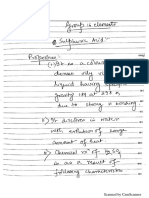 Group 16 elements
Sulphuric Acid:-
Properties:-
(i) It is a colourless
dense oily
liquid having
gravity at 298 K
due to strong H bonding
(ii) It dissolves in water
with evolution of large
amount of heat.
(iii) Chemical rxn of H2SO4
is as a result of
following characteristics
Scanned by CamScanner